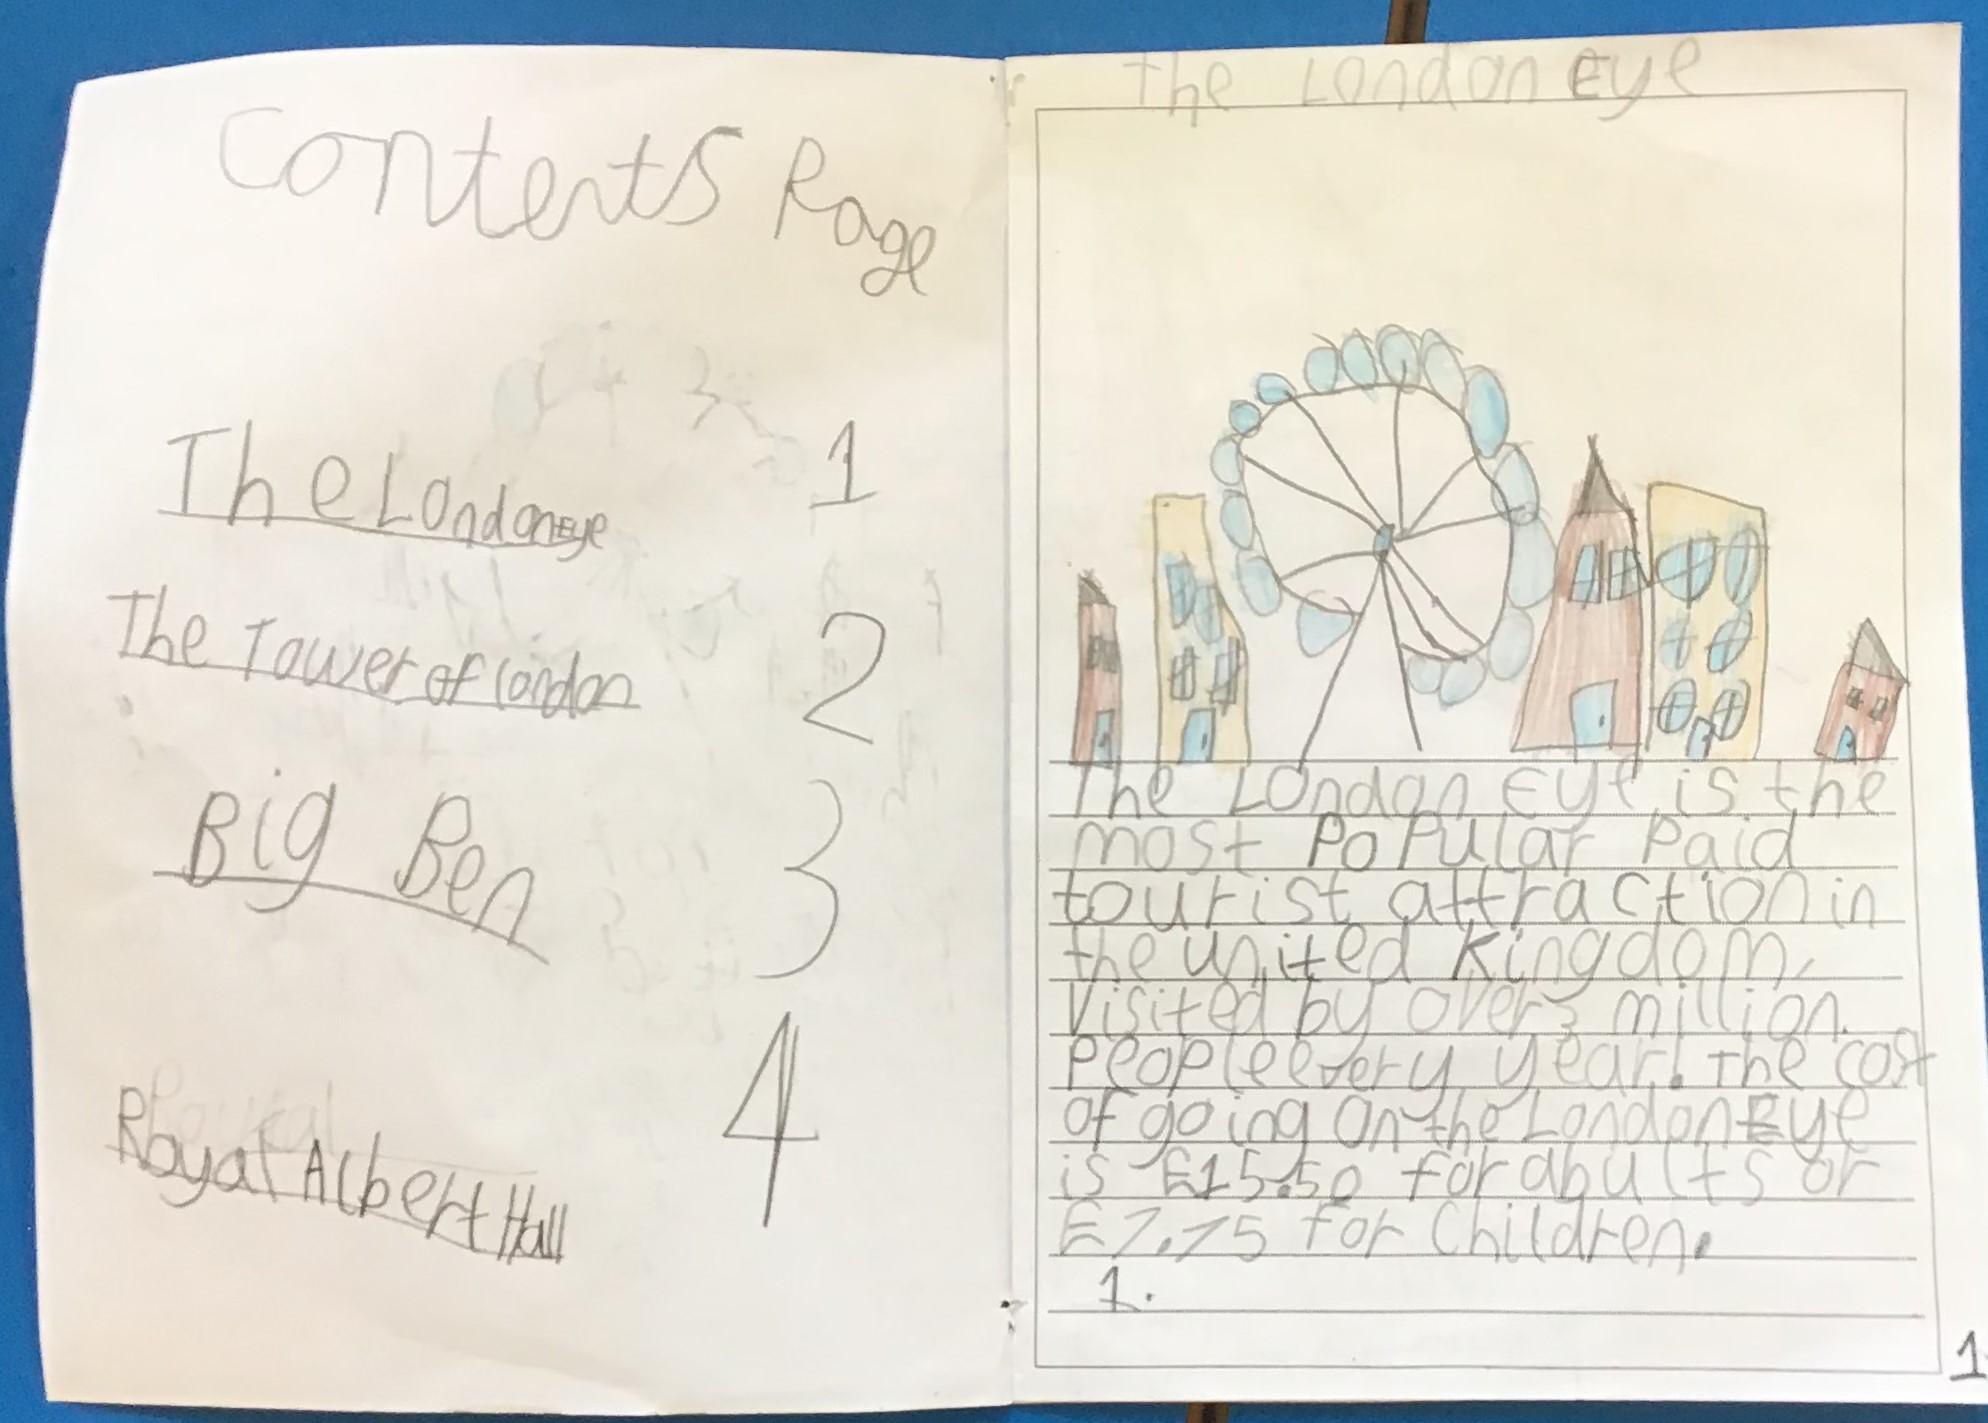 Contents Page
The London Eye 1
The Tower of London 2
Big Ben 3
Royal Albert Hall 4
The London Eye
The London Eye is the
most Popular Paid
tourist attraction in
the united Kingdom,
Visited by over 3 million
People every year. The cost
of going on the London Eye
is £15.50 for abults or
£7.75 for Children.
1.
1